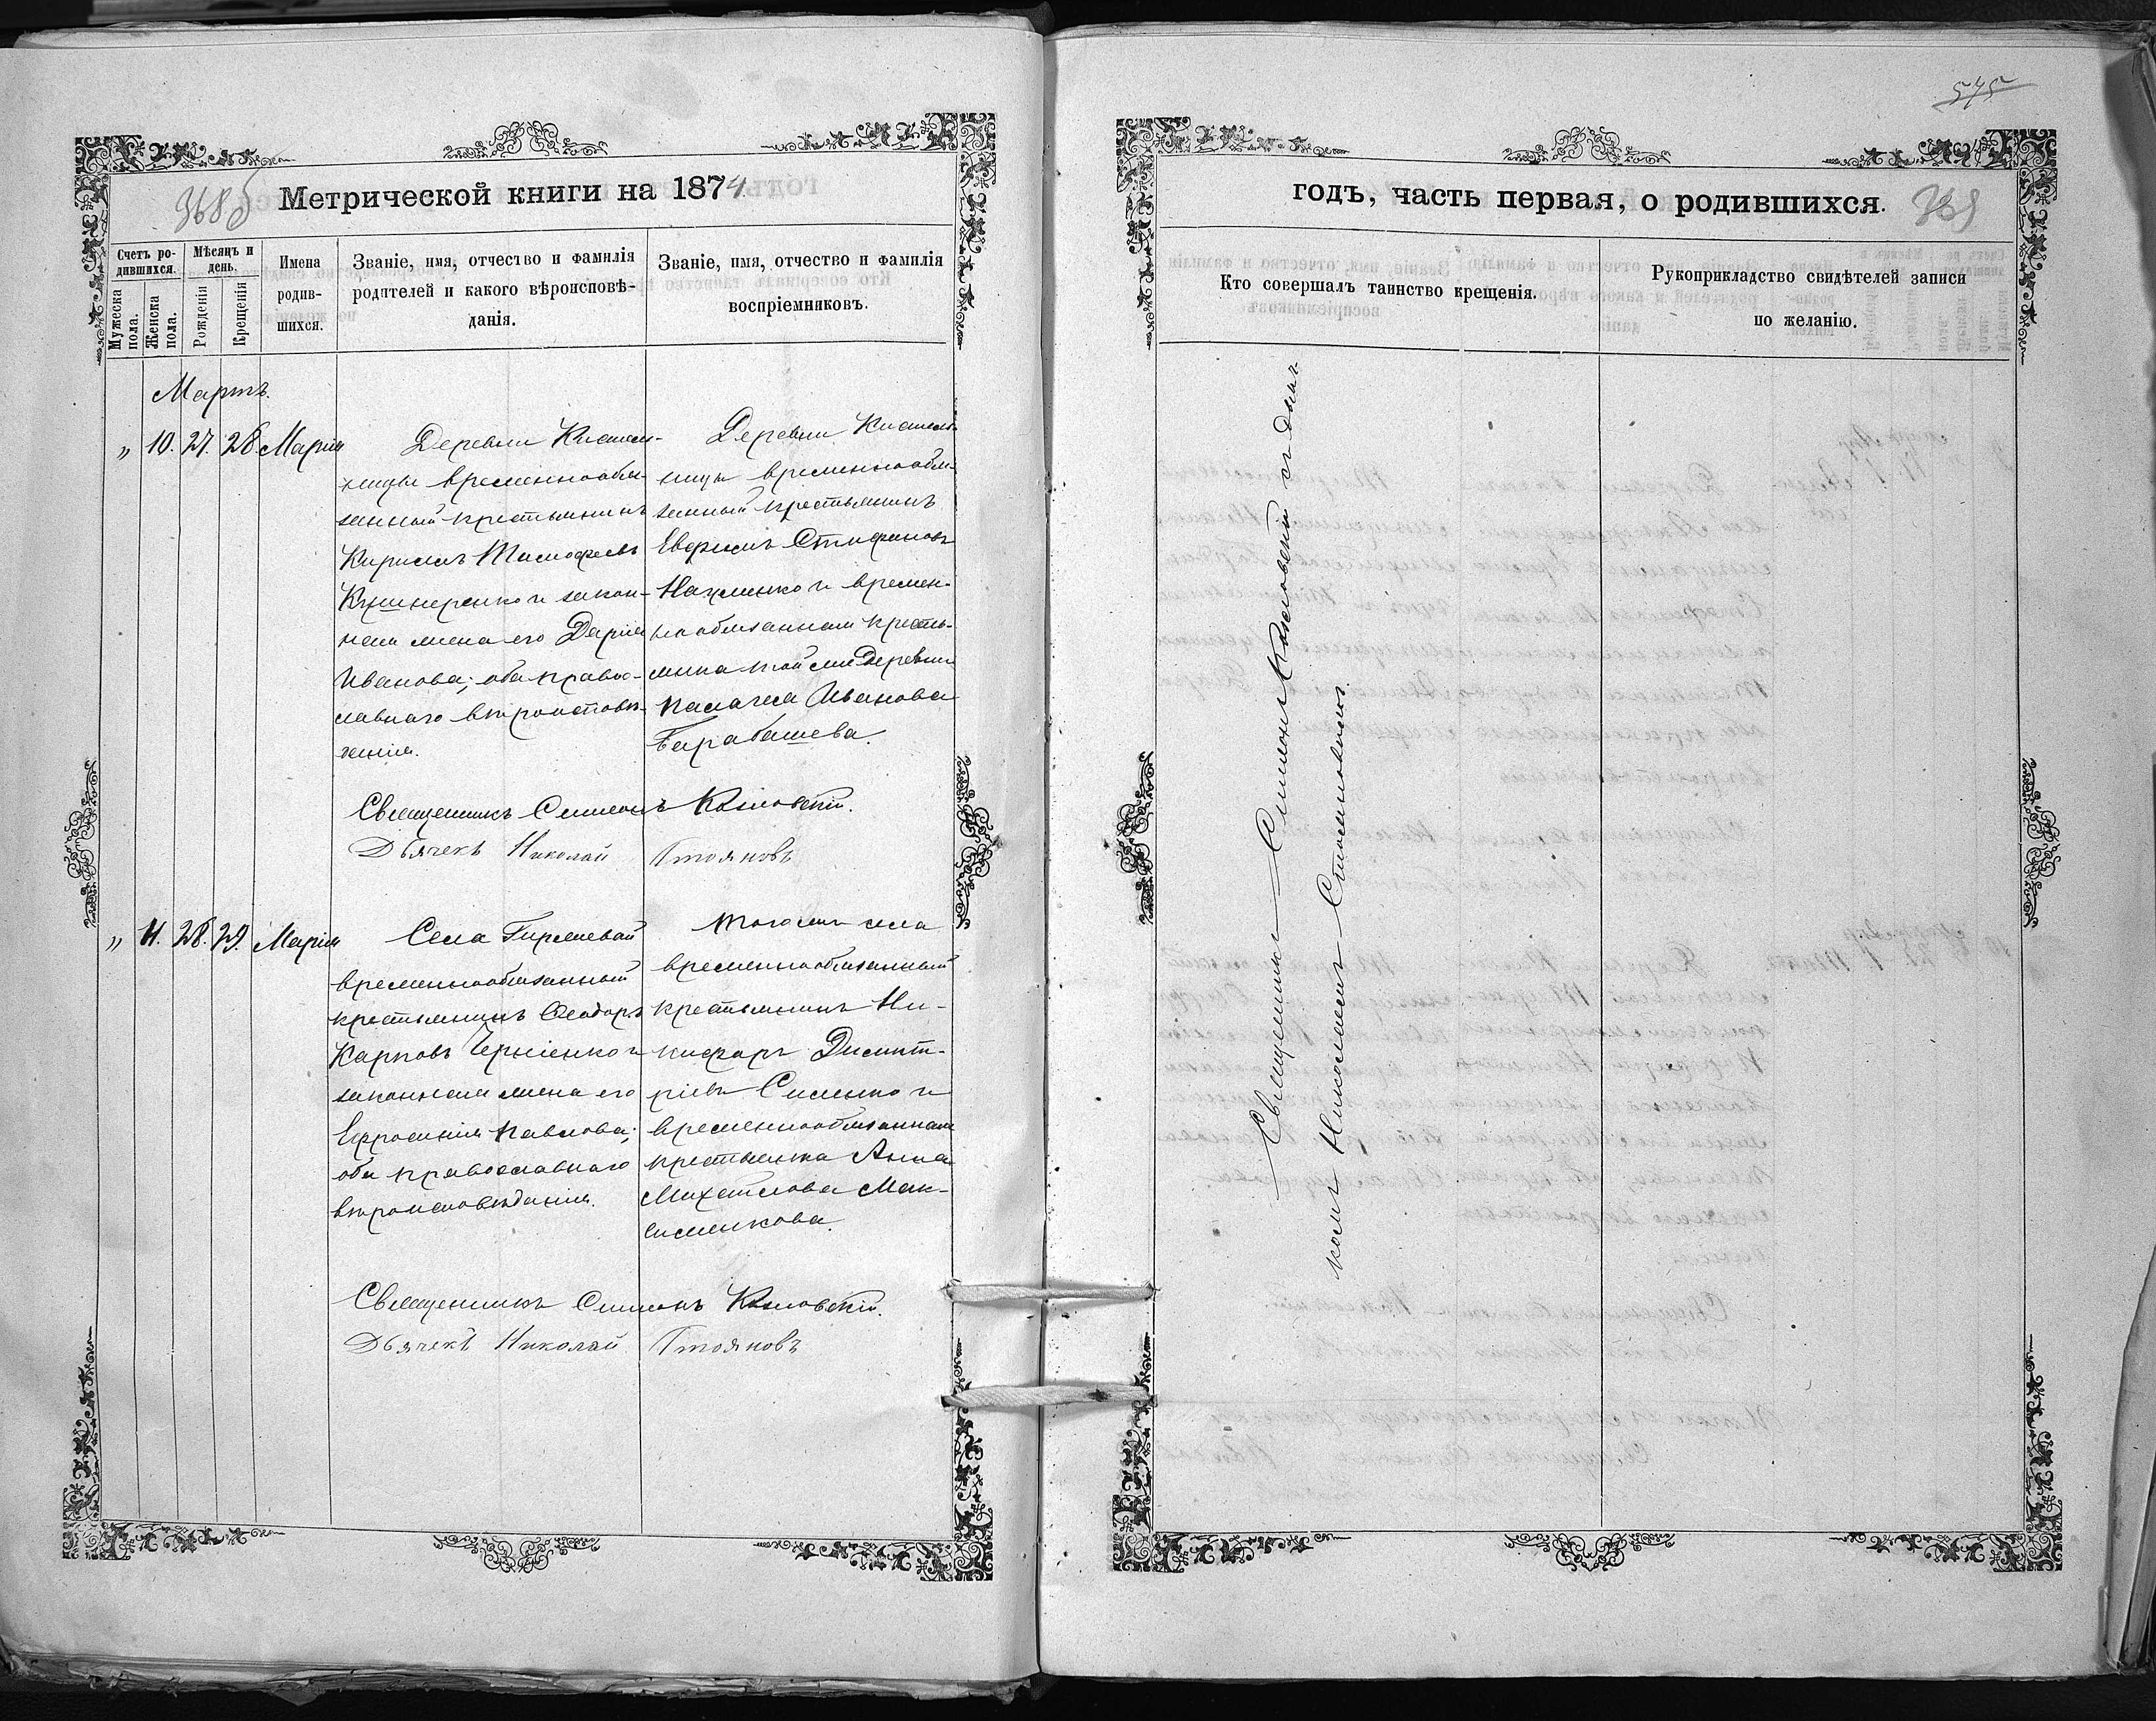 545
368 б
Метрической книги на 1874.
Счетъ ро-
дившихся.
Мужеска
пола.
Женска
пола.
Мѣсяцъ и
день.
Рожденія
Крещенія
Имена
родив-
шихся.
Званіе, имя, отчество и фамилія
родителей и какого вѣроисповѣ-
данія.
Званіе, имя, отчество и фамилія
воспріемниковъ.
Мартъ.
„ 10. 27. 28. Марія
Деревни
временнообя-
занный крестьянинъ
Кириллъ Тимофеевъ
Кушнеренко и закон-
ная жена его Дарія
Иванова; оба правос-
лавнаго вѣроисповѣ-
Деревни
временнообя-
занный крестьянинъ
Евфимъ Стефановъ
и времен-
нообязанная кресть-
янка той же деревни
Палагея Иванова
Барабашева.
Священникъ Симеонъ Козловскій.
Дьячекъ Николай Стояновъ
„ 11. 28. 29. Марія
Села
временнообязанный
крестьянинъ Ѳеодоръ
Карповъ Черненко и
законная жена его
Евфросинія Павлова;
оба православнаго
вѣроисповѣданія.
Того же села
временнообязанный
крестьянинъ Ни-
кифоръ Димит-
ріевъ Сименко и
временнообязанная
крестьянка Анна
Михайлова Мак-
сименкова.
Священникъ Симеонъ Козловскій.
Дьячекъ Николай Стояновъ
годъ, часть первая, о родившихся.
369
Кто совершалъ таинство крещенія.
Рукоприкладство свидѣтелей записи
по желанію.
Священникъ Симеонъ Козловскій съ дьяч-
комъ Николаемъ Стояновымъ.